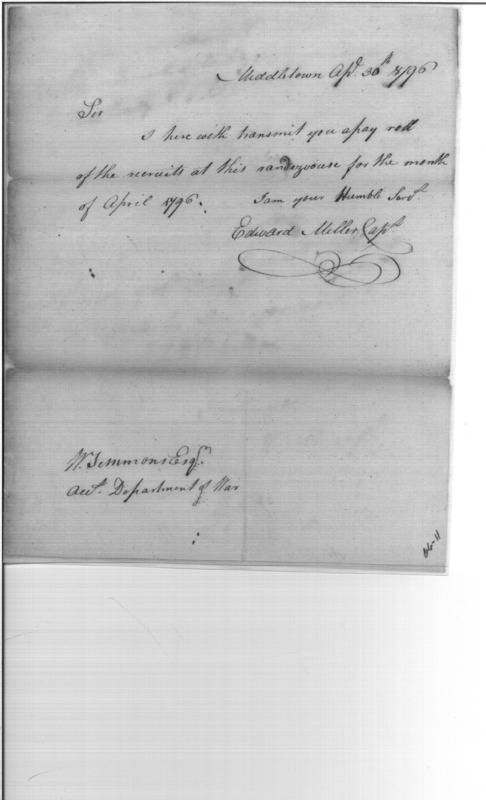 Middletown Apl. 30th 1796
Sir
I here with transmit you a pay roll
of the recruits at this randezvouse for the month
of April 1796. I am your Humble Servt.
Edward Miller Capt.
W. Simmons Esqr.
Acct. Department of War